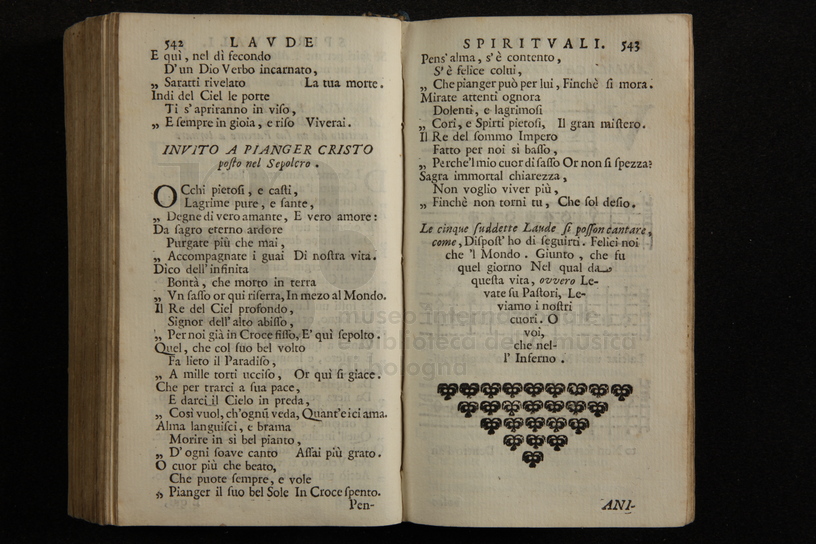 542 LAVDE
E quì, nel dì secondo
D'un Dio Verbo incarnato,
„ Saratti rivelato La tua morte.
Indi del Ciel le porte
Ti s'apriranno in viso,
„ E sempre in gioia, e riso Viverai.
INVITO A PIANGER CRISTO
posto nel Sepolcro.
OCchi pietosi, e casti,
Lagrime pure, e sante,
„ Degne di vero amante, E vero amore:
Da sagro eterno ardore
Purgate più che mai,
„ Accompagnate i guai Di nostra vita.
Dico dell'infinita
Bontà, che morto in terra
„ Vn sasso or qui riserra, In mezo al Mondo.
Il Re del Ciel profondo,
Signor dell'alto abisso,
„ Per noi già in Croce fisso, E' quì sepolto.
Quel, che col suo bel volto
Fa lieto il Paradiso,
„ A mille torti ucciso, Or quì si giace.
Che per trarci a sua pace,
E darci il Cielo in preda,
„ Così vuol, ch'ognũ veda, Quant'e i ci ama.
Alma languisci, e brama
Morire in sì bel pianto,
„ D'ogni soave canto Assai più grato.
O cuor più che beato,
Che puote sempre, e vole
„ Pianger il suo bel Sole In Croce spento.
Pen-
SPIRITVALI. 543
Pens'alma, s'è contento,
S'è felice colui,
„ Che pianger può per lui, Finchè si mora.
Mirate attenti ognora
Dolenti, e lagrimosi
„ Cori, e Spirti pietosi, Il gran mistero.
Il Re del sommo Impero
Fatto per noi si basso,
„ Perche'l mio cuor di sasso Or non si spezza?
Sagra immortal chiarezza,
Non voglio viver più,
„ Finchè non torni tu, Che sol desio.
Le cinque suddette Laude si posson cantare,
come, Dispost'ho di seguirti. Felici noi
che 'l Mondo. Giunto, che fu
quel giorno Nel qual da
questa vita, ovvero Le-
vate su Pastori, Le-
viamo i nostri
cuori. O
voi,
che nel-
l'Inferno.
ANI-
museo internazionale
e biblioteca della musica
bologna